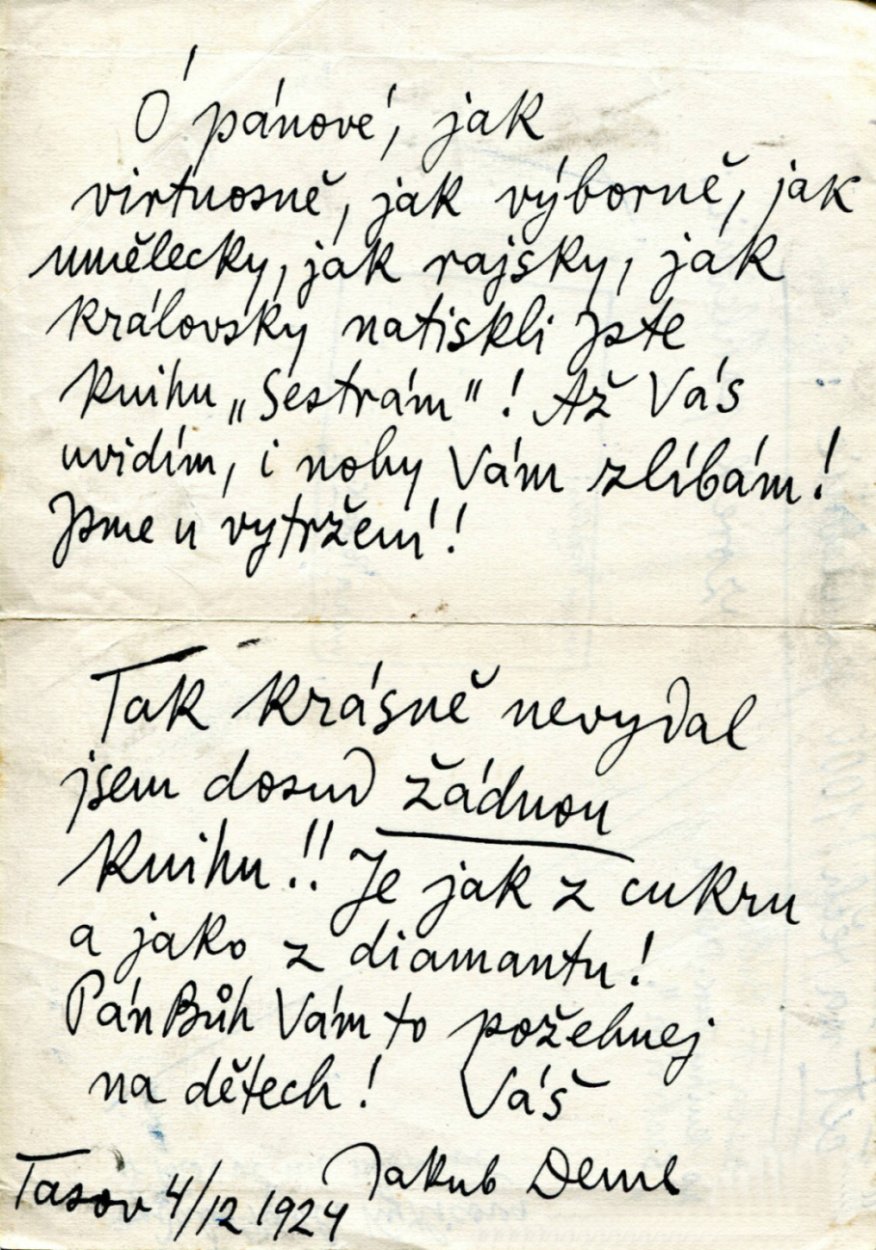 Ó pánové, jak
virtuosně, jak výborně, jak
umělecky, jak rajsky, jak
královsky natiskli jste
knihu „Sestrám"! Až Vás
uvidím, i nohy Vám zlíbám!
Jsme u vytržení!
Tak krásně nevydal
jsem dosud žádnou
knihu!! Je jak z cukru
a jako z diamantu!
Pán Bůh Vám to požehnej
na dětech! Váš
Jakub Deml
Tasov 4/12 1924